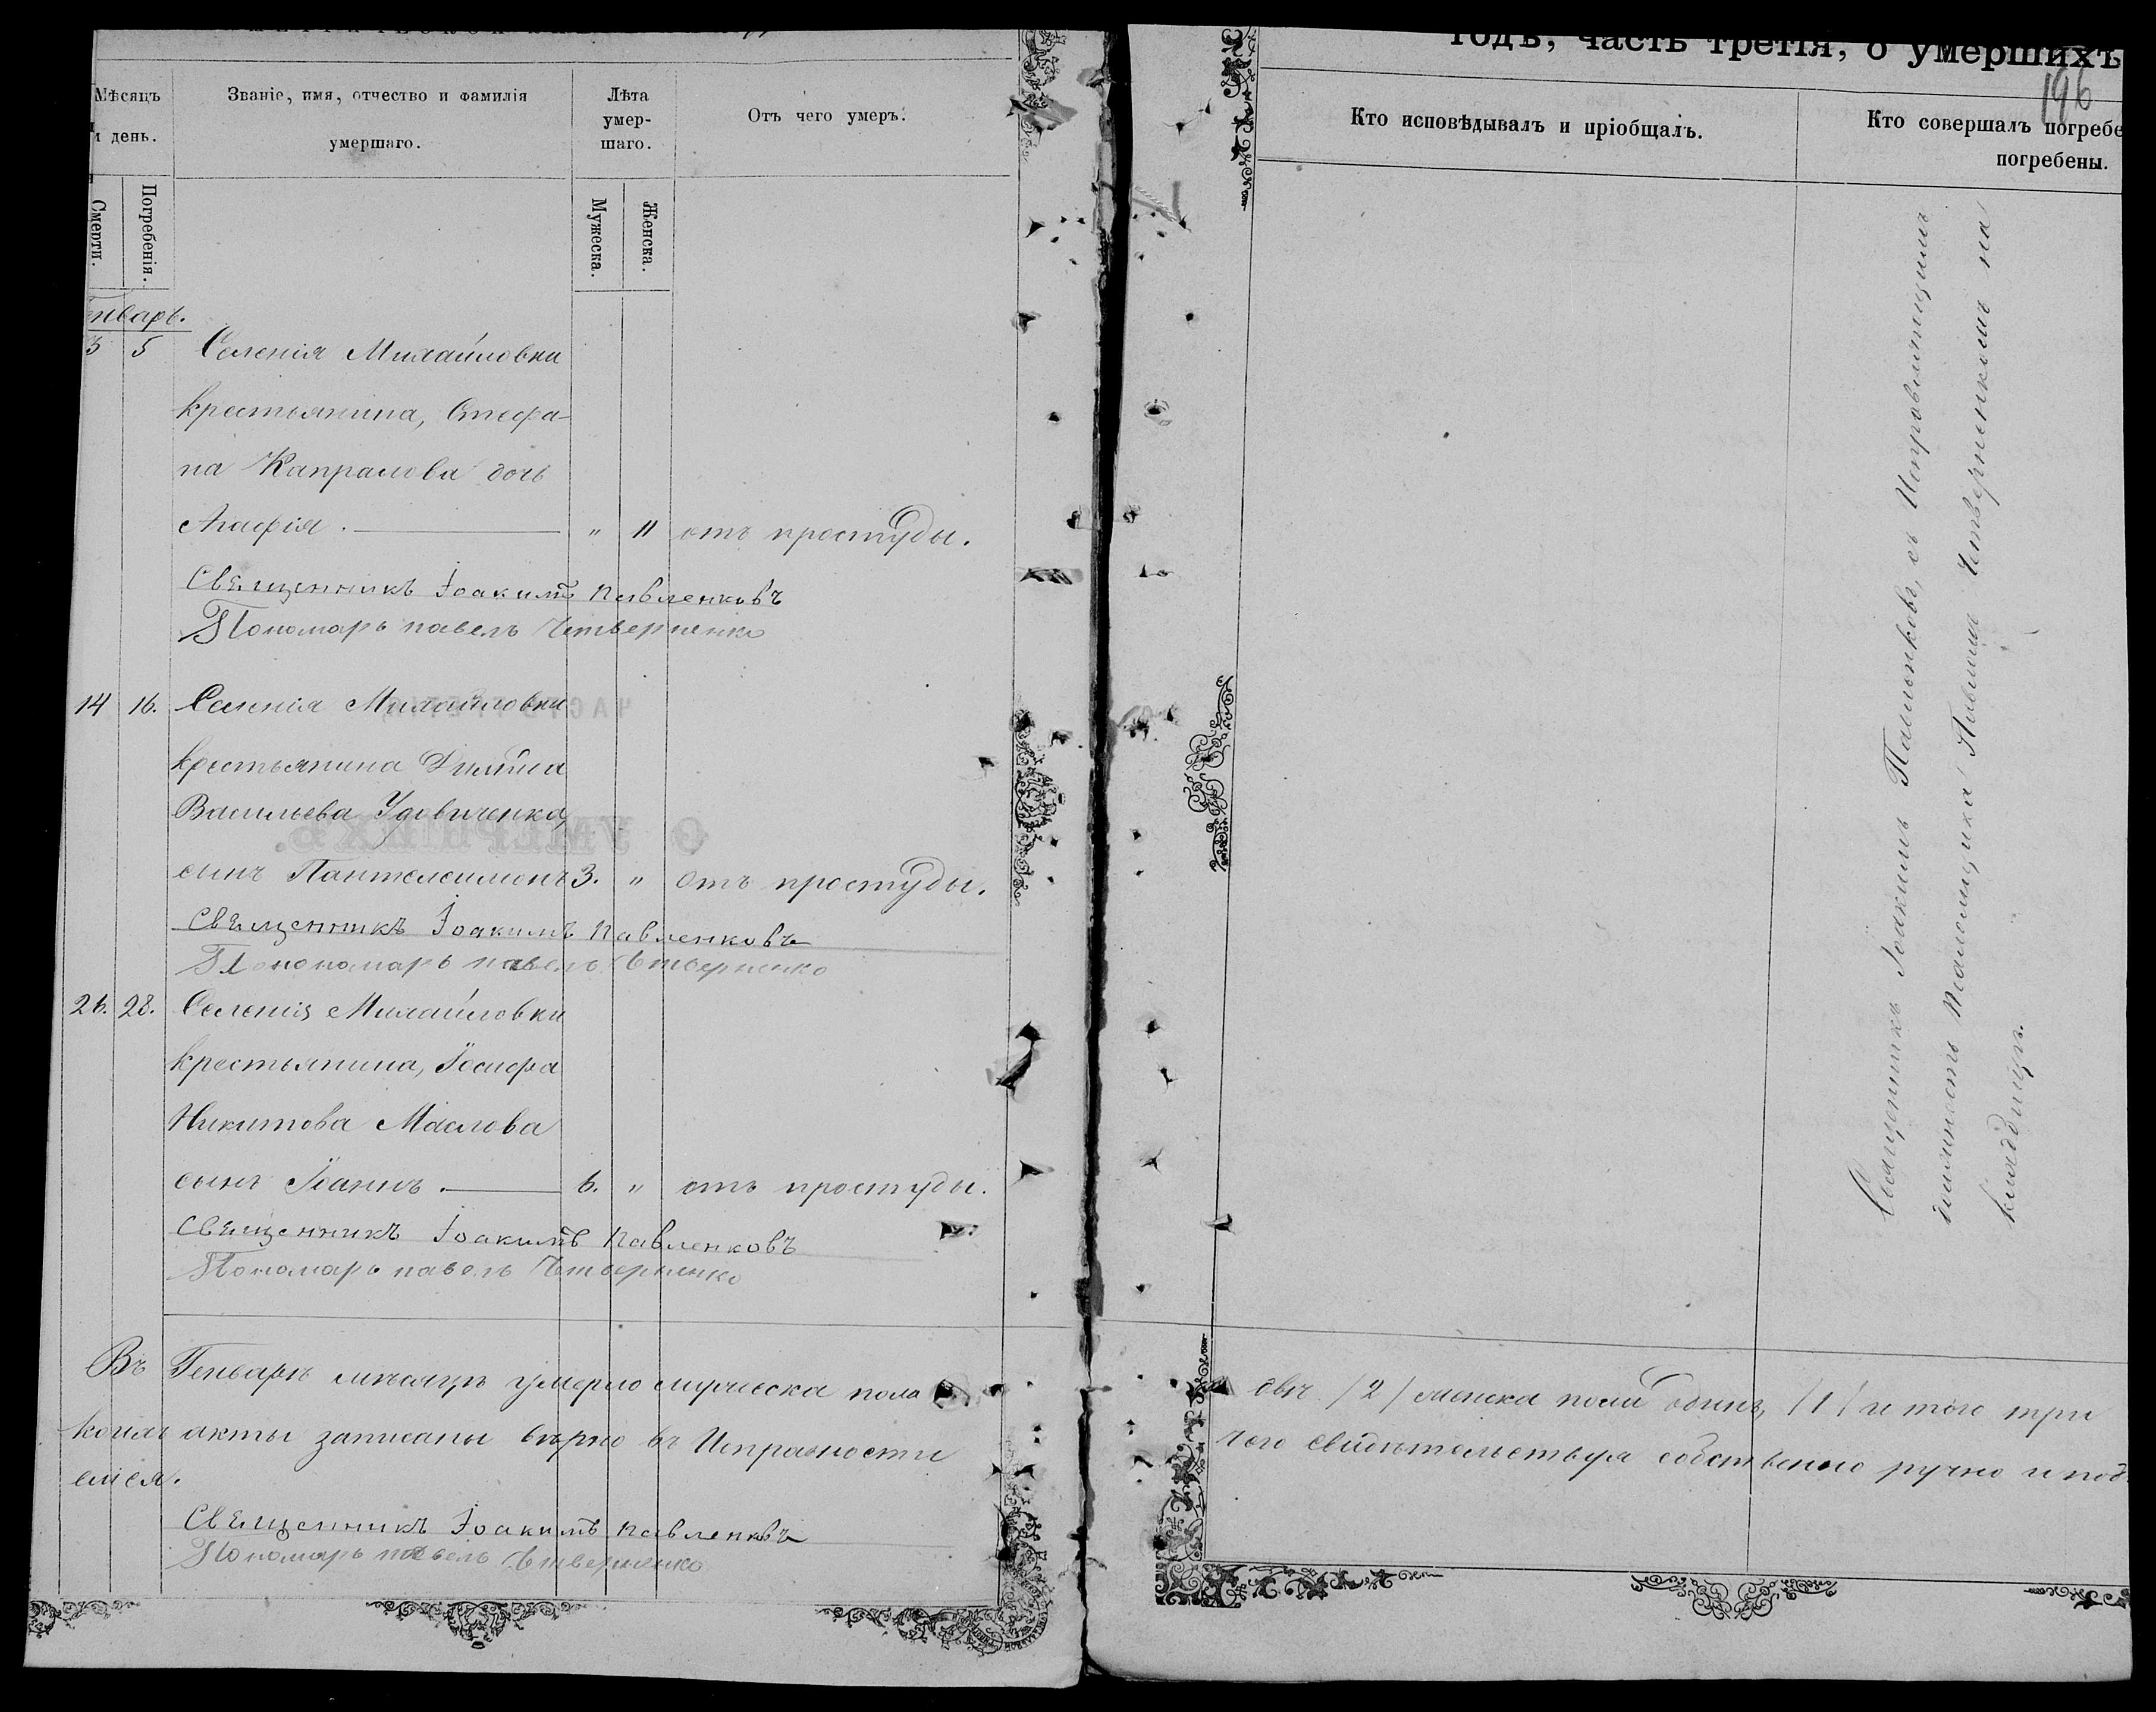 годъ, часть третія, о умершихъ
196
Мѣсяцъ и день.
Званіе, имя, отчество и фамилія
умершаго.
Лѣта
умер-
шаго.
Отъ чего умеръ.
Кто исповѣдывалъ и пріобщалъ.
Кто совершалъ погребе
погребены.
Смерти.
Погребенія.
Мужеска.
Женска.
Генварь.
3 5 Селенія Михайловки
крестьянина, Стефа-
на Капралова дочь
Агафія. „ 11 отъ простуды.
Священникъ Іоакимъ Павленковъ
Пономарь павелъ Четверненко
14 16. Селенія Михайловки
крестьянина Филипа
Васильева Удовиченка,
сынъ Пантелеимонъ 3. „ отъ простуды.
Священникъ Іоакимъ Павленковъ
Понономарь павелъ Четверненко
26. 28. Селенія Михайловки
крестьянина, Іосифа
Никитова Маслова
сынъ Іоаннъ. 6. „ отъ простуды.
Священникъ Іоакимъ Павленковъ
Пономарь павелъ Четверненко
Священникъ Іоакимъ Павленковъ, съ Исправляющимъ
должность Псаломщика Павломъ Четверненкомъ на
кладбищѣ.
Въ Генварѣ мѣсяцѣ умерло мужеска пола двѣ /2/ женска пола одинъ, /1/ итого три
коихъ акты записаны вѣрно въ Исправности чего свидѣтельствуя собственно ручно и под
емся.
Священникъ Іоакимъ Павленковъ
Пономарь павелъ Четверненко